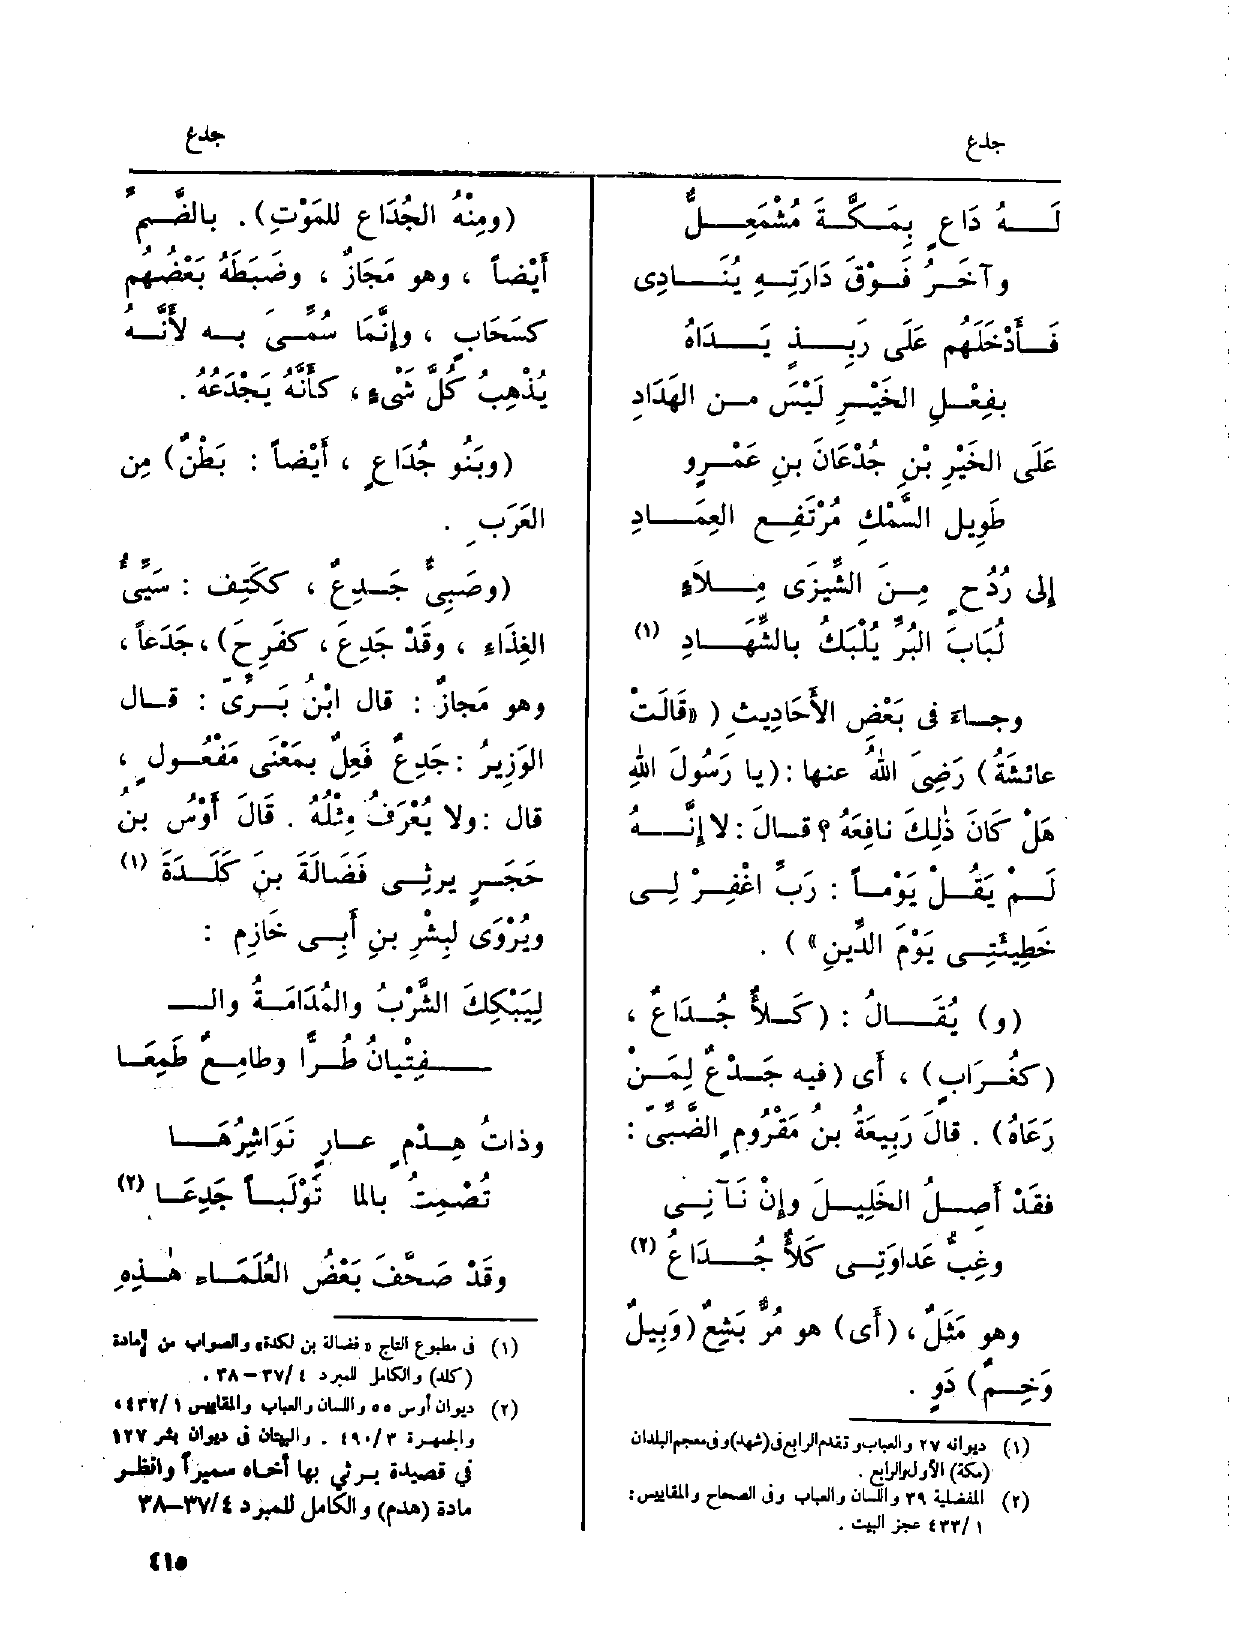 جدع
جدع
لَـــهُ دَاعٍ بِمَـكَّـةَ مُشْمَعِــلٌّ
وآخَــرُ فَــوْقَ دَارَتِــهِ يُنَــادِى
فَــأَدْخَلَهُم عَلَى رَبِــذٍ يَــدَاهُ
بِفِعْــلِ الخَيْــرِ لَيْسَ مـن الهَدَادِ
عَلَى الخَيْرِ بْنِ جُدْعَانَ بنِ عَمْـرٍو
طَوِيلِ السَّمْكِ مُرْتَفِـعِ العِمَــادِ
إلى رُدُحٍ مِـنَ الشِّيزَى مِــلاَءٍ
لُبَابَ البُرِّ يُلْبَكُ بالشِّهَــادِ (١)
وجـاءَ فى بَعْضِ الأَحَادِيثِ ( «قَالَتْ
عائشةُ) رَضِىَ اللهُ عنها : (يا رَسُولَ اللهِ
هَلْ كَانَ ذٰلِكَ نافِعَهُ ؟ قـالَ : لا إنَّــهُ
لَــمْ يَقُــلْ يَوْمـاً : رَبِّ اغْفِـرْ لِـى
خَطِيئَتِـى يَوْمَ الدِّينِ» ) .
(و) يُقَــالُ : (كَــلأٌ جُـدَاعٌ ،
(كغُـرَابٍ) ، أى (فيه جَـدْعٌ لِمَـنْ
رَعَاهُ) . قالَ رَبِيعَةُ بنُ مَقْرُومٍ الضَّبِّىّ :
فقَدْ أَصِـلُ الخَلِيـلَ وإِنْ نَـآنِـى
وغِبُّ عَداوَتِـى كَلأٌ جُــدَاعُ (٢)
وهو مَثَلٌ ، (أى) هو مُرٌّ بَشِعٌ (وَبِيلٌ
وَخِـمٌ) دَوٍ .
(١) ديوانه ٢٧ والعباب وتقدم الرابع فى (شهد) وفى معجم البلدان
(مكة) الأول والرابع .
(٢) المفضلية ٣٩ واللسان والعباب وفى الصحاح والمقاييس :
١ /٤٣٣ عجز البيت .
(ومِنْهُ الجُدَاعِ للمَوْتِ) . بالضَّـمِّ
أَيْضاً ، وهو مَجَازٌ ، وضَبَطَهُ بَعْضُهُم
كسَحَابٍ ، وإنَّمَا سُمِّـىَ بـه لأَنَّــهُ
يُذْهِبُ كُلَّ شَىْءٍ ، كأَنَّهُ يَجْدَعُهُ .
(وبَنُو جُدَاعٍ ، أَيْضاً : بَطْنٌ) مِن
العَرَبِ .
(وصَبِىٌّ جَـدِعٌ ، ككَتِفٍ : سَيِّىُّ
الغِذَاءِ ، وقَدْ جَدِعَ ، كفَرِحَ) ، جَدَعاً ،
وهو مَجازٌ : قال ابْنُ بَـرِّىّ : قـال
الوَزِيرُ : جَدِعٌ فَعِلٌ بمَعْنَى مَفْعُـولٍ ،
قال : ولا يُعْرَفُ مِثْلُهُ . قَالَ أَوْسُ بن
حَجَـرٍ يرثِـى فَضَالَةَ بنَ كَلَـدَةَ (١)
ويُرْوَى لبِشْرِ بنِ أَبِـى خَازِمٍ :
لِيَبْكِكَ الشَّرْبُ والمُدَامَـةُ والـــ
ــفِتْيانُ طُـرًّا وطامِـعٌ طَمِعَـا
وذاتُ هِـدْمٍ عـارٍ نَوَاشِرُهَــا
تُصْمِتُ بالما تَوْلَبـاً جَدِعَـا (٢)
وقَدْ صَحَّفَ بَعْضُ العُلَمَـاءِ هٰـذِهِ
(١) فى مطبوع التاج « فضالة بن لكدة» والصواب من مادة
(كلد) والكامل للمبرد ٤ /٣٧ – ٣٨ .
(٢) ديوان أوس ٥٥ واللسان والعباب والمقاييس ١ /٤٣٢ ،
والجمهرة ٣ /٤٩٠ . والبيتان فى ديوان بشر ١٢٧
في قصيدة يرثي بها أخاه سميراً وانظر
مادة (هدم) والكامل للمبرد ٤ /٣٧–٣٨
٤١٥